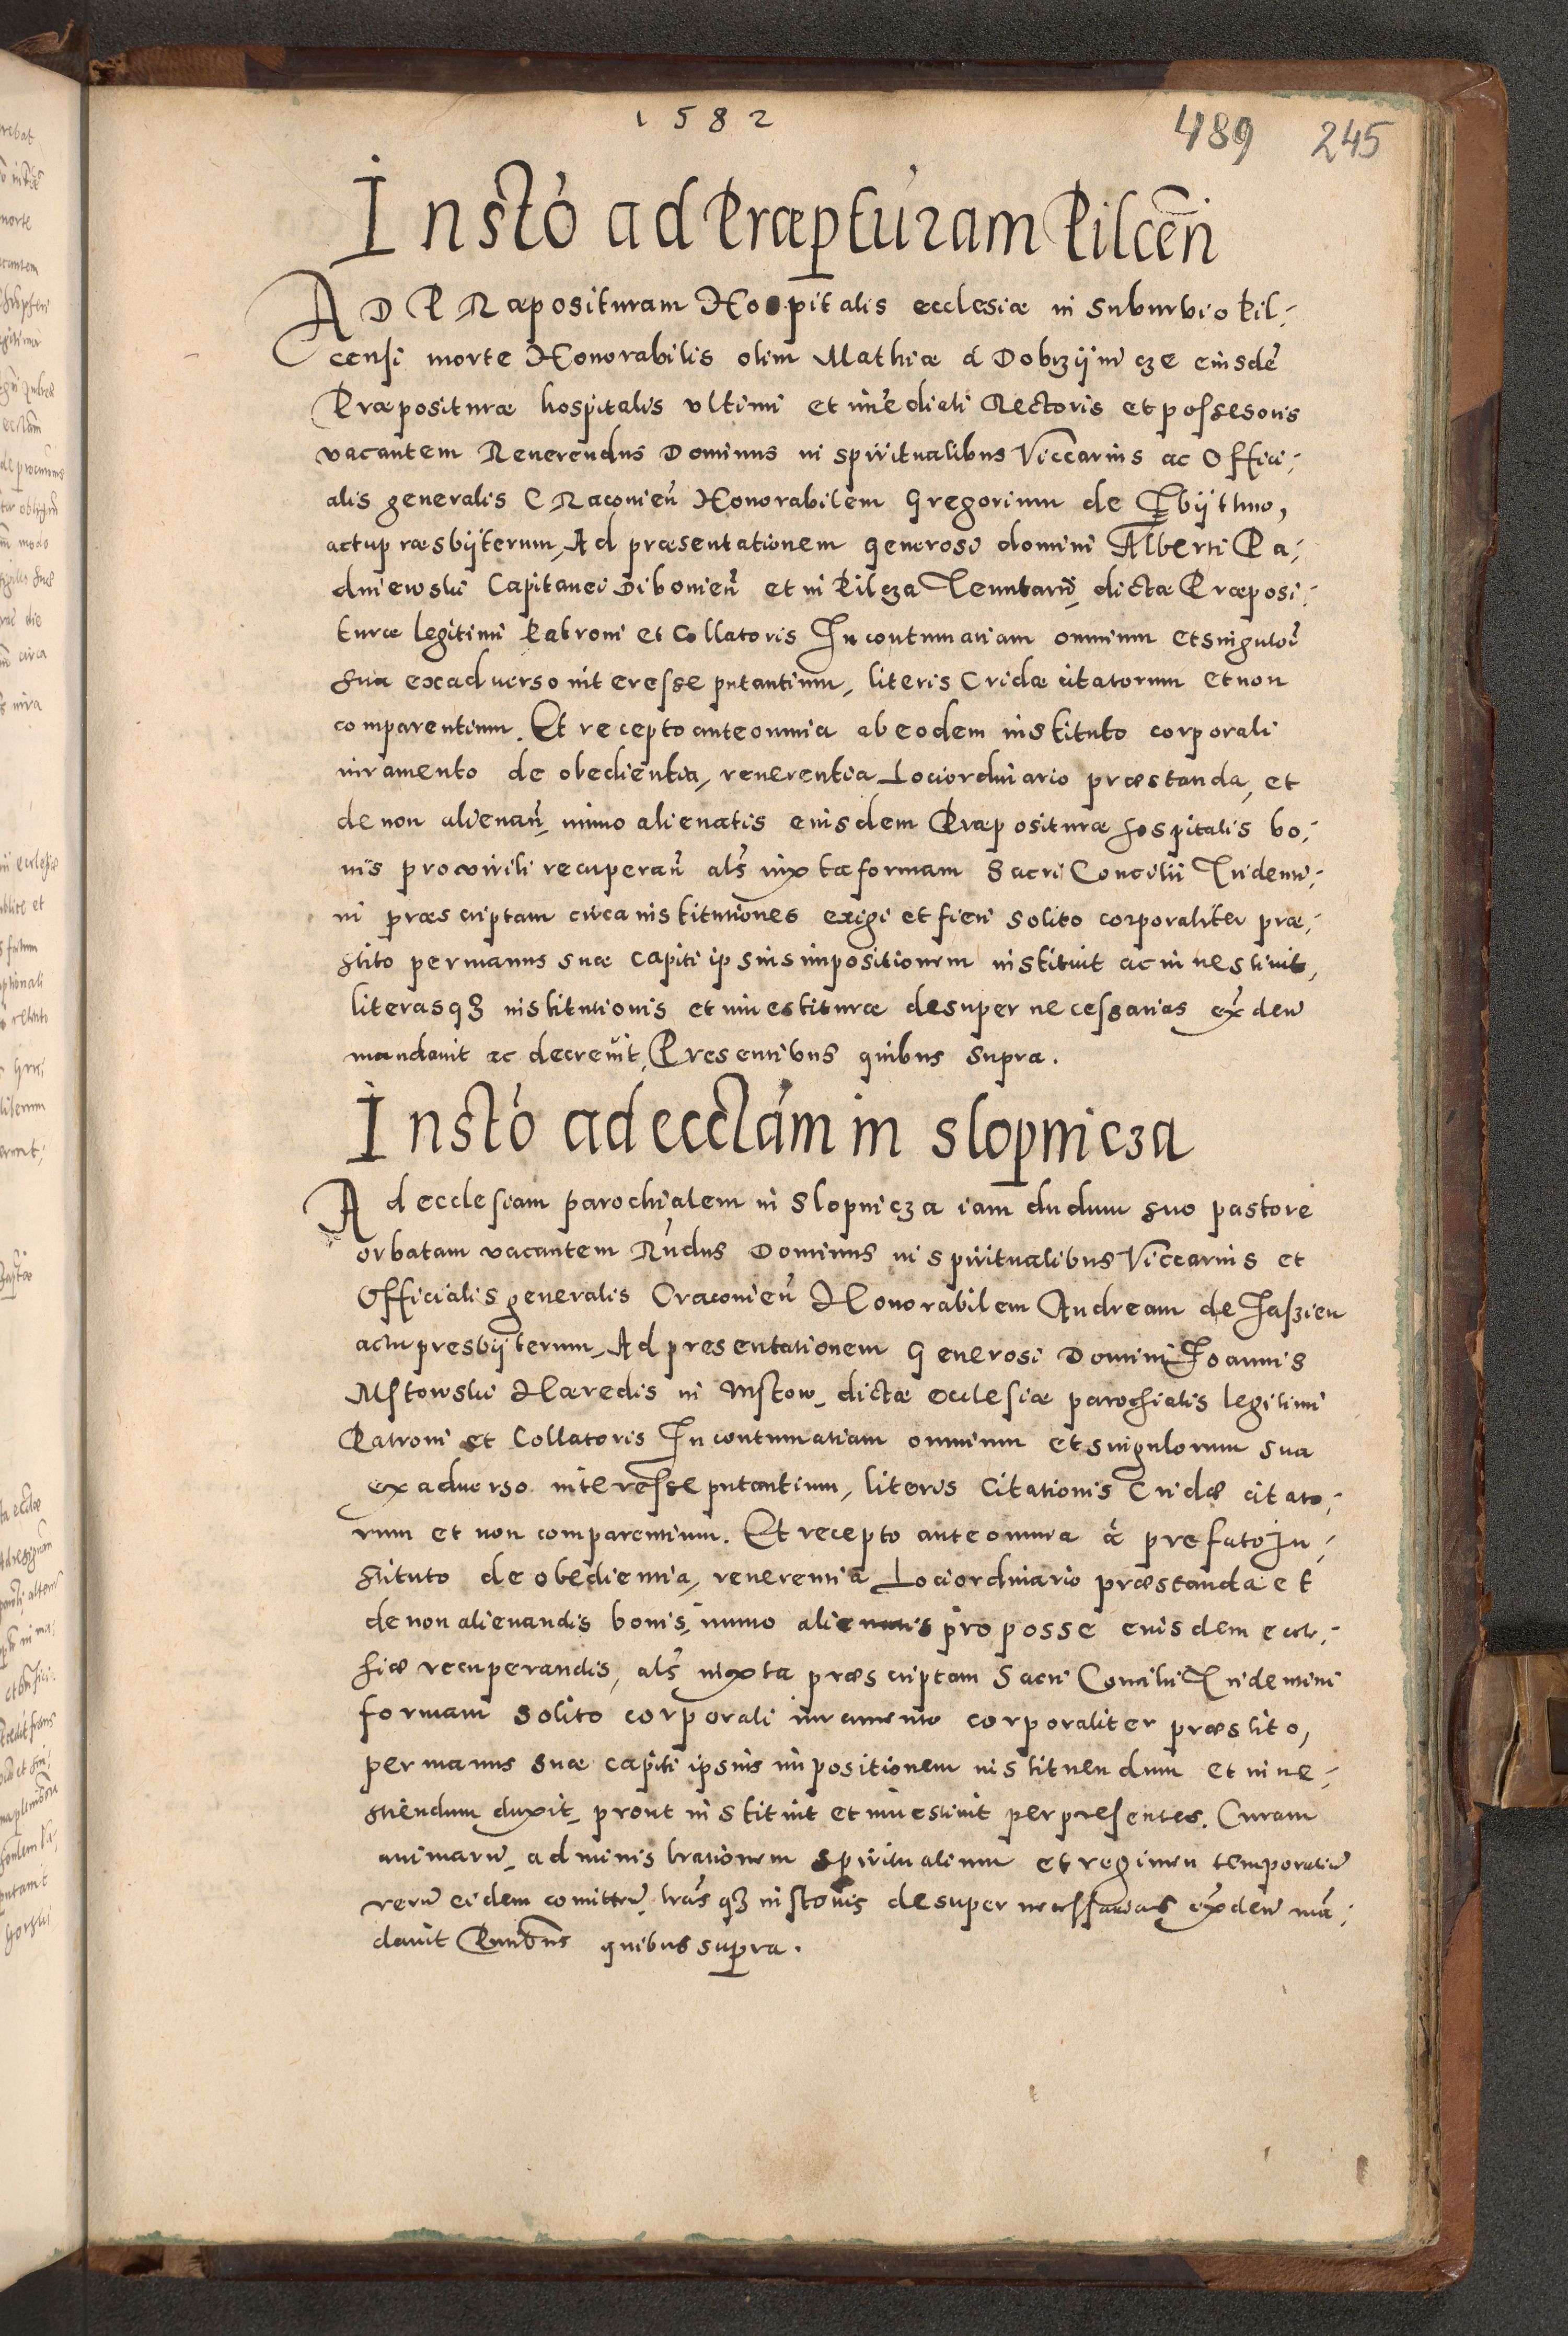 1582
489 245
Instō ad Præpturam Pilcen̄
AD PRæposituram Hospitalis ecclesiæ in suburbio Pil-
censi morte Honorabilis olim Mathiæ a Dobrzijnicze eiusdē
Præposituræ hospitalis vltimi et im̄ediati Rectoris et possesoris
vacantem Reuerendus Dominus in spiritualibus Viccarius ac Offici-
alis generalis CRacouien̄ Honorabilem Gregorium de Zbijthno,
actu præsbijterum, Ad præsentationem generosi domini Alberti Pa-
dniewski Capitanei Dibouien̄ et in Pilcza Tenutarij, dictæ Præposi-
turæ legitimi Patroni et Collatoris In contumatiam omnium et singulor̄
sua ex aduerso interesse putantium, literis Cridæ citatorum et non
comparentium. Et recepto ante omnia ab eodem instituto corporali
iuramento de obedientia, reuerentia Loci ordinario præstanda, et
de non alienan̄, immo alienatis eiusdem Præposituræ hospitalis bo-
nis pro virili recuperan̄ als̄ iuxta formam Sacri Concilii Tridenti-
ni præscriptam circa institutiones exigi et fieri solito corporaliter præ-
stito per manus suæ capiti ipsius impositionem instituit ac inuestiuit,
literasqȝ institutionis et inuestituræ desuper necessarias ex̄den̄
mandauit ac decreuit, Presentibus quibus supra.
Instō ad eccłam in Slopnicza
Ad ecclesiam parochialem in Slopnicza iam dudum suo pastore
orbatam vacantem Rn̄dus Dominus in spiritualibus Viccarius et
Officialis generalis Cracouien̄ Honorabilem Andream de Jaszien
actu presbijterum, Ad presentationem Generosi Domini Joannis
Mstowski Hæredis in Mstow, dictæ ecclesiæ parochialis legitimi
Patroni et Collatoris In contumatiam omnium et singulorum sua
ex aduerso interesse putantium, literis Citationis Cridæ citato-
rum et non comparentium. Et recepto ante omnia à prefato In-
stituto de obedientia, reuerentia Loci ordinario præstanda et
de non alienandis bonis, immo alienatis pro posse eiusdem eccle-
siæ recuperandis, als̄ iuxta præscriptam Sacri Concilii Tridentini
formam solito corporali iuramento corporaliter præstito,
per manus suæ capiti ipsius impositionem instituendum et inue-
stiendum duxit, prout instituit et inuestiuit per presentes. Curam
animarū, administrationem spiritualium et regimen temporaliū
rerū eidem comitten̄, lr̄as qȝ instōnis desuper necessarias ex̄den̄ mā-
dauit Pn̄tibus quibus supra.